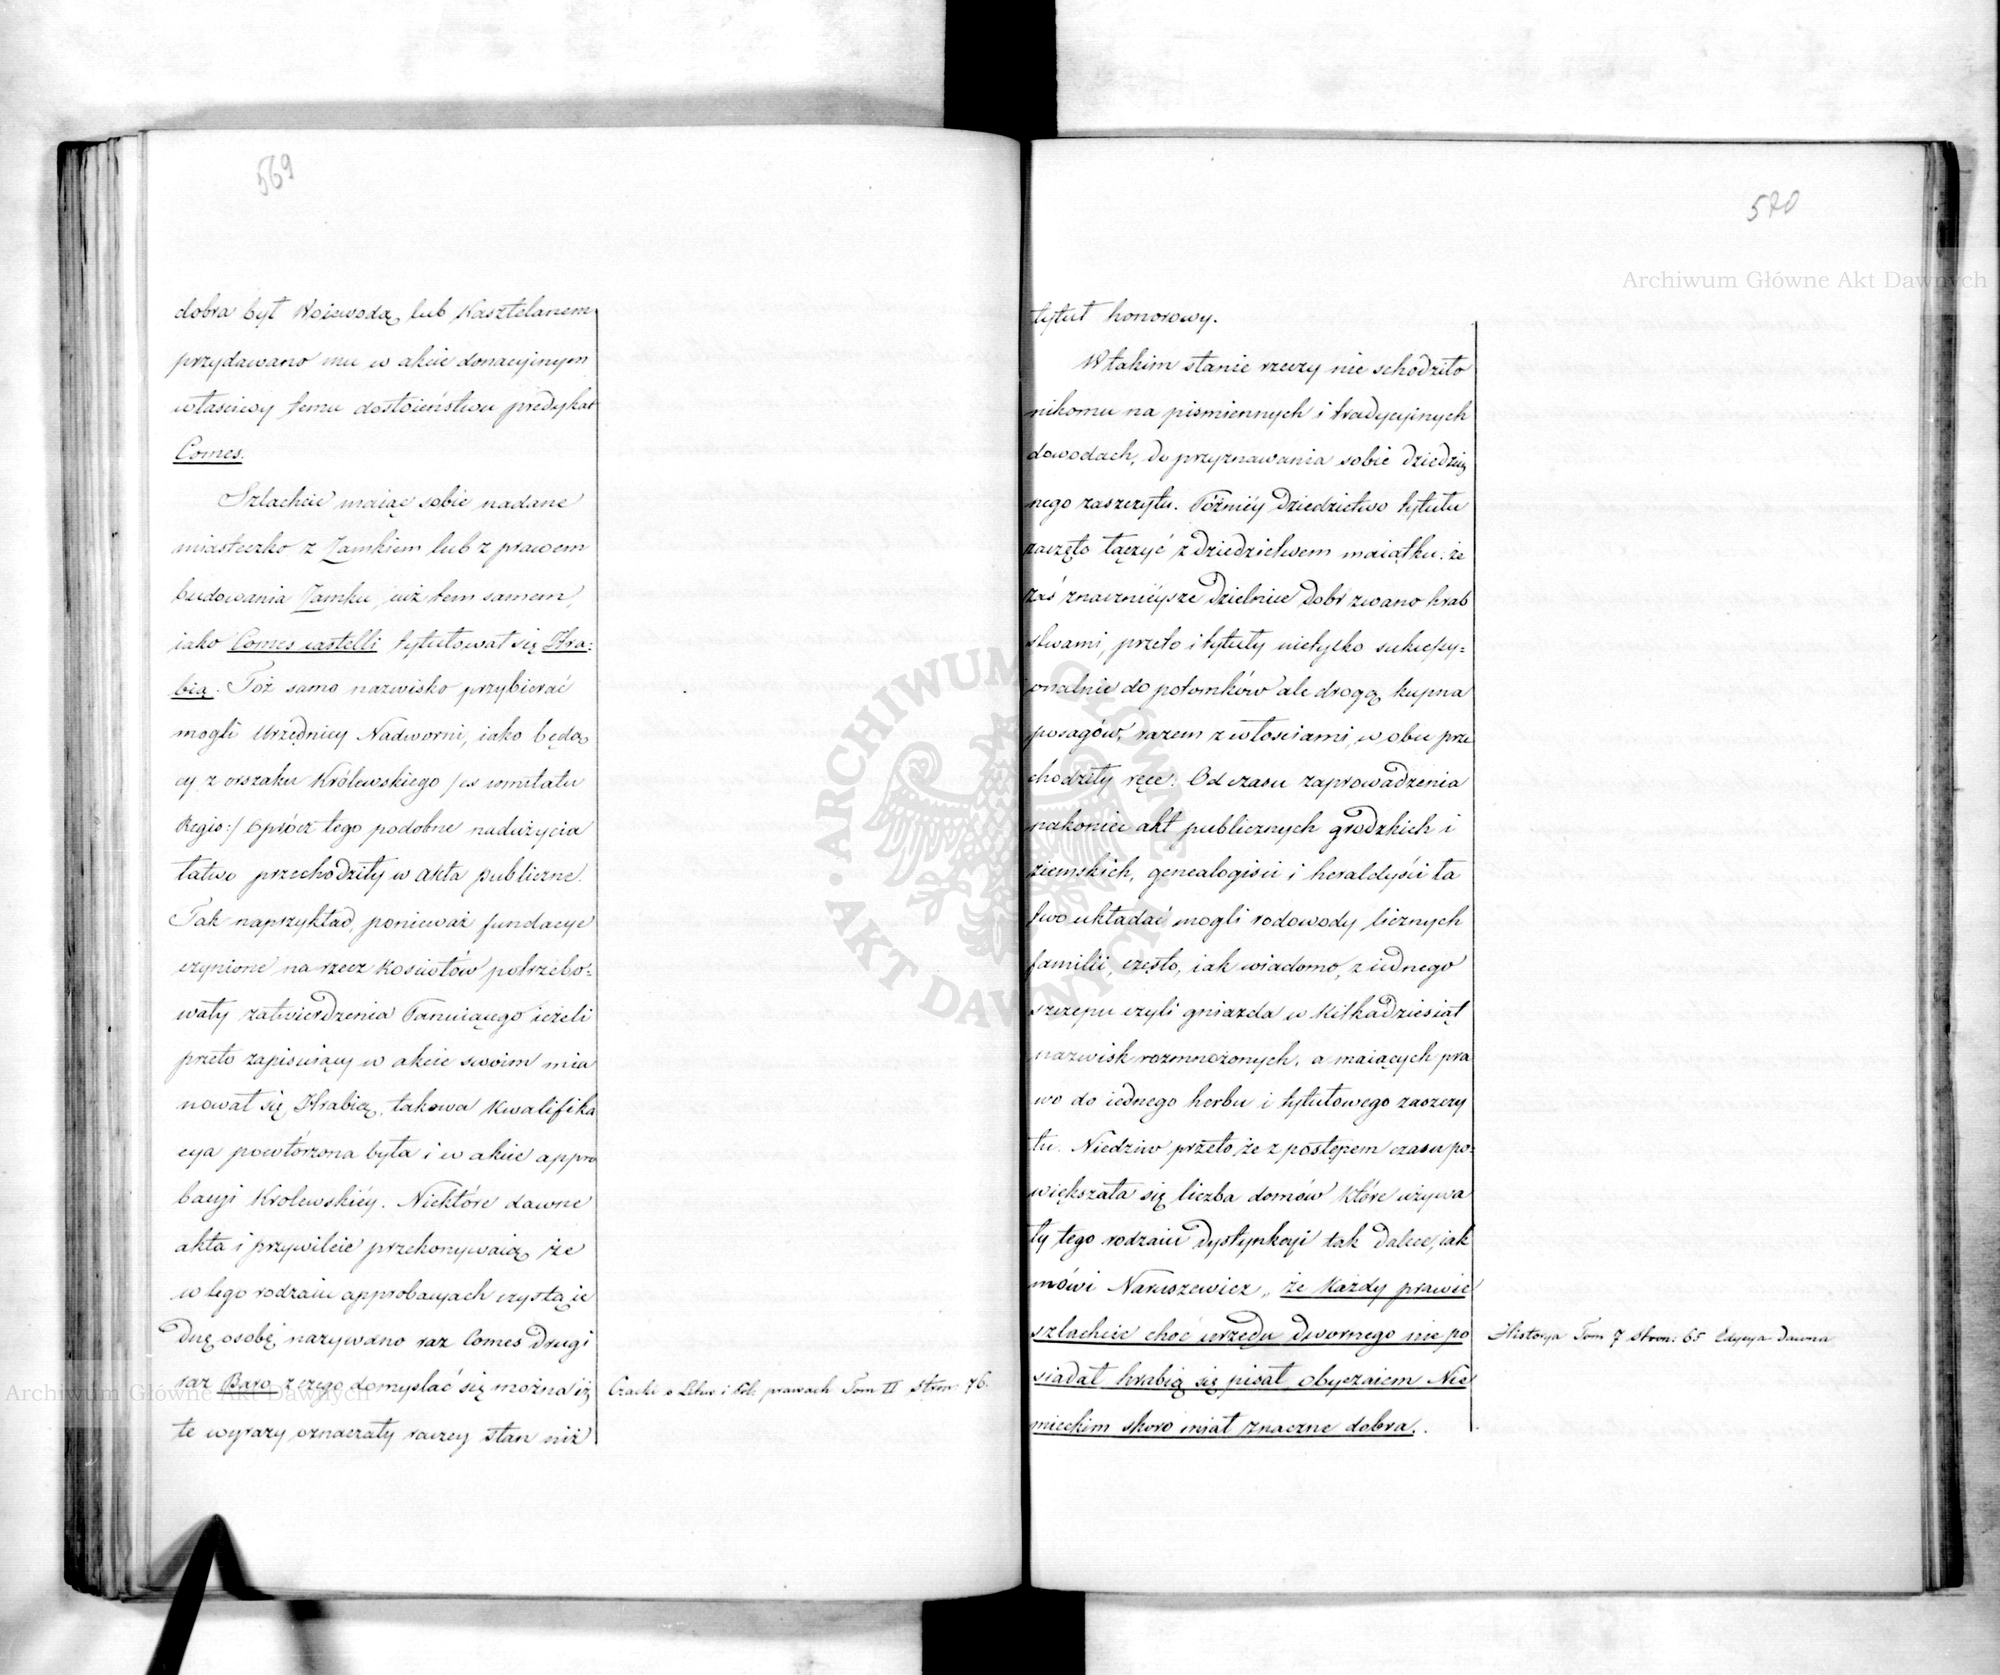 569
dobra był Woiewodą lub Kasztelanem
przydawano mu w akcie donacyjnym
właściwy temu dostoieństwu predykat
Comes.
Szlachcic maiąc sobie nadane
miasteczko z Zamkiem lub z prawem
budowania Zamku, iuż tem samem,
iako Comes castelli tytułował się Hra:
bią. Toż samo nazwisko przybierać
mogli Urzędnicy Nadworni, iako będą
cy z orszaku Królewskiego /:es comitatu
Regis:/ Oprócz tego podobne nadużycia
łatwo przechodziły w akta publiczne.
Tak naprzykład, ponieważ fundacye
czynione na rzecz Kościołów potrzebo=
wały zatwierdzenia Panuiącego ieżeli
przeto zapisuiący w akcie swoim mia
nował się Hrabią, takowa Kwalifika
cya powtórzona była i w akcie appro
bacyi Krolewskiéy. Niektóre dawne
akta i przywileie przekonywaią że
w tego rodzaiu approbacyach częstą ie
dnę osobę nazywano raz Comes drugi
raz Baro z czego domyslać się można iż
te wyrazy oznaczały raczey stan niż
Czacki o Litew i Pol: prawach Tom II Stron: 76.
570
tytuł honorowy.
W takim stanie rzeczy nie schodziło
nikomu na pismiennych i tradycyjnych
dowodach, do przyznawania sobie dziedzicz
nego zaszczytu. Póżniéy dziedzictwo tytułu
zaczęto łączyć z dziedzictwem maiątku: że
zaś znaczniéysze dzielnice dobr zwano hrab
stwami, przeto i tytuły nietylko sukcessy=
onalnie do potomków ale drogą kupna
posagów, razem z włościami, w obce prze
chodziły ręce. Od czasu zaprowadzenia
nakoniec akt publicznych grodzkich i
ziemskich, genealogisci i heraldyści ła
two układać mogli rodowody licznych
familii, często, iak wiadomo, z iednego
szczepu czyli gniazda w Kilkadziesiąt
nazwisk rozmnożonych, a maiących pra
wo do iednego herbu i tytułowego zaszczy
tu. Niedziw przeto że z postępem czasu po=
większała się liczba domów które używa
ły tego rodzaiu dystynkcyi tak dalece, iak
mówi Naruszewicz, „że Każdy prawie
szlachcic choć urzędu dwornego nie po
siadał hrabią się pisał, obyczaiem Nie
mieckim skoro miał znaczne dobra.
Historya Tom 7 stron: 65 Edycya dawna
Archiwum Główne Akt Dawnych
ARCHIWUM GŁÓWNE
AKT DAWNYCH
Archiwum Główne Akt Dawnych